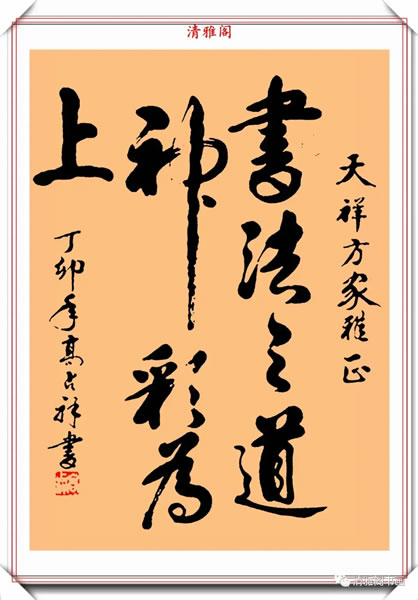 清雅阁
天祥方家雅正
書法之道
神彩為
上
丁卯年高占祥書
清雅阁书画